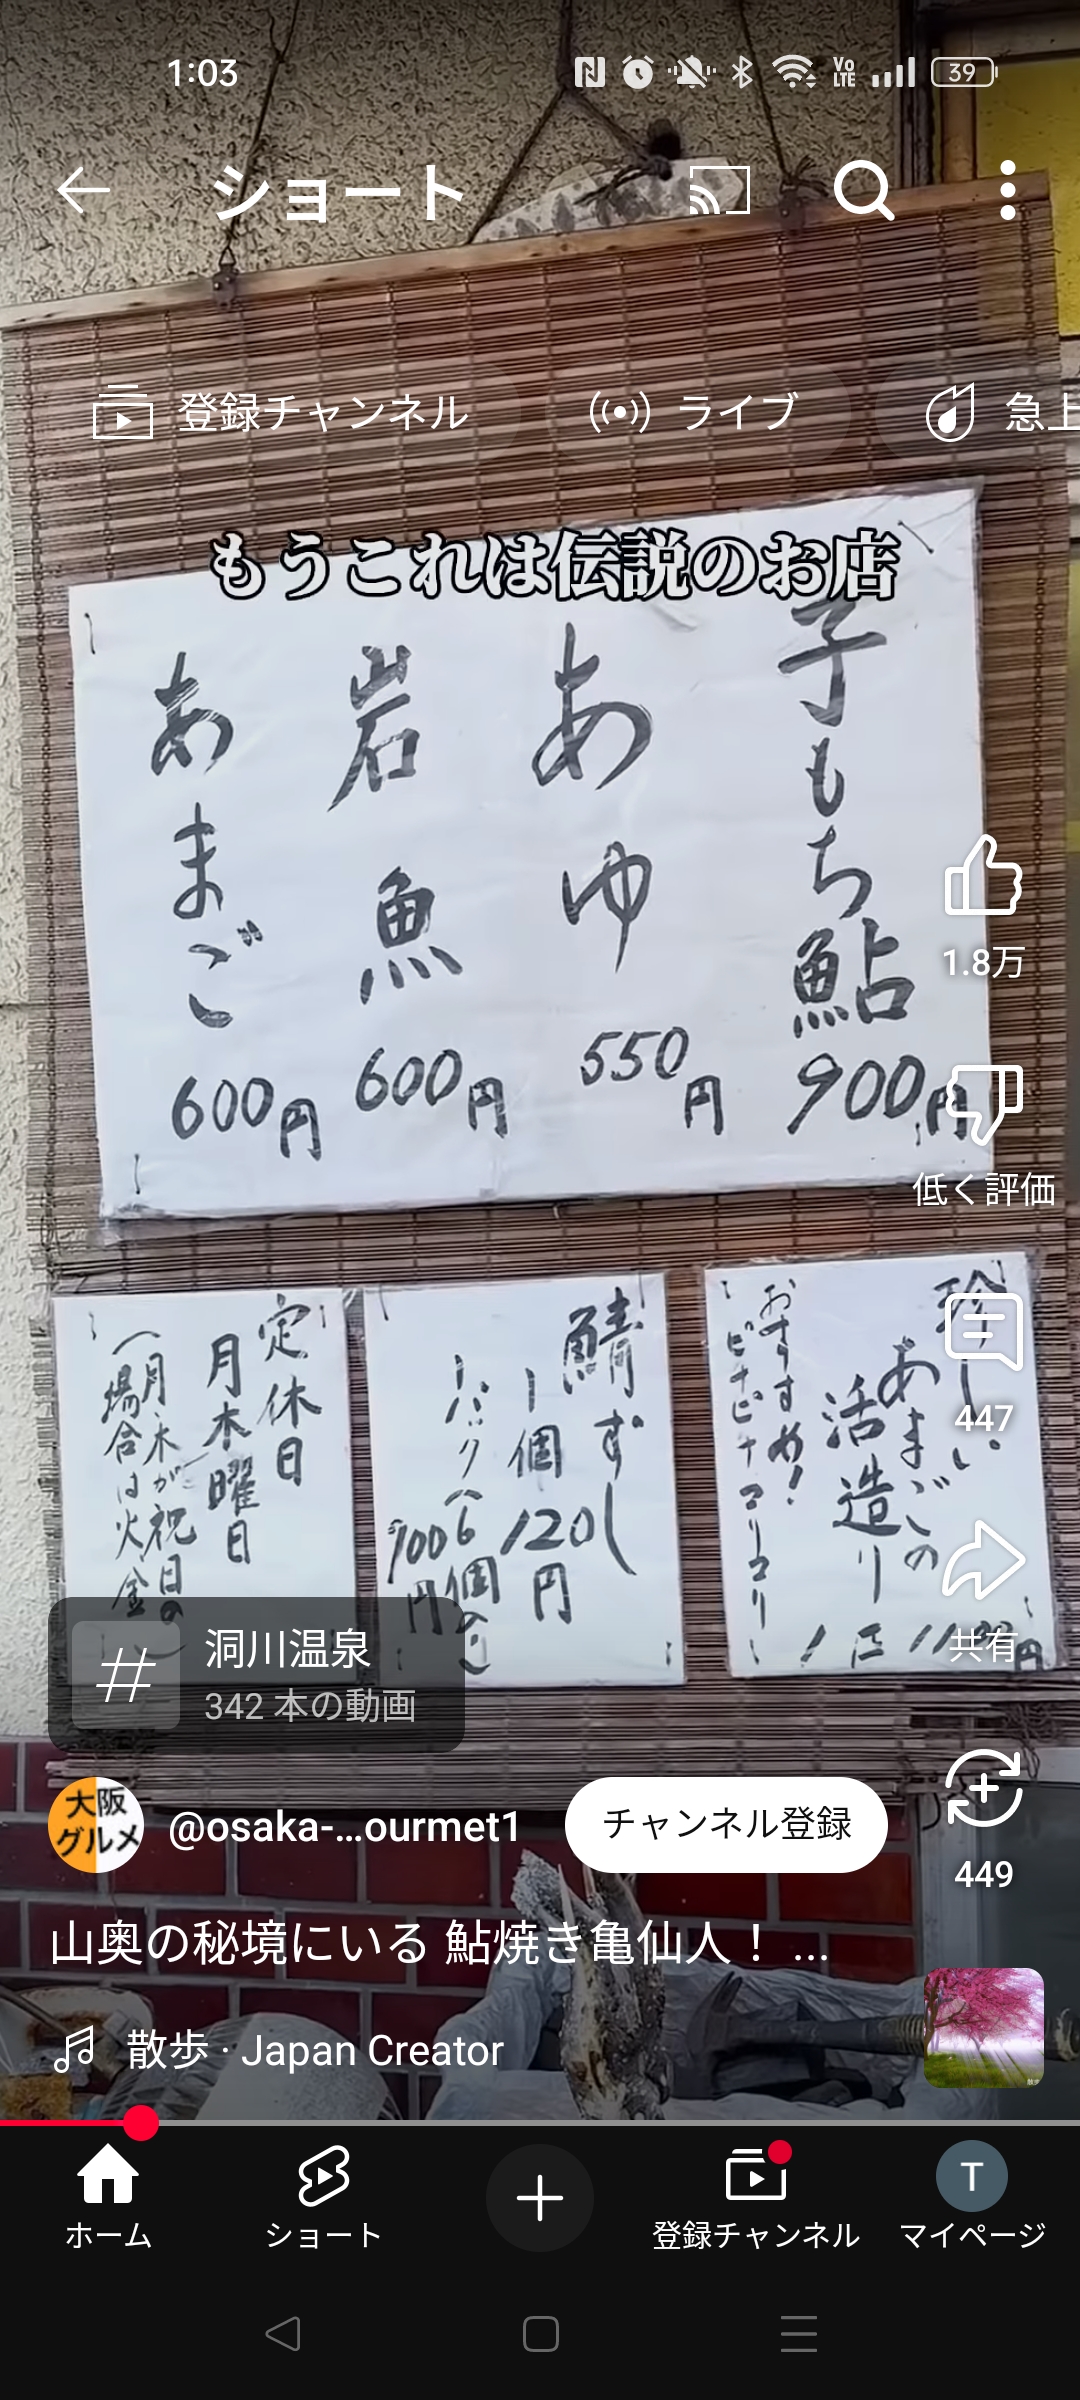 1:03
39
ショート
登録チャンネル
ライブ
急上
もうこれは伝説のお店
子もち鮎
900円
あゆ
550円
岩魚
600円
あまご
600円
珍しい
あまごの
活造り
おすすめ!
ピチピチコリコリ
鯖ずし
1個120円
1パック(6個入)
700円
定休日
月木曜日
(月・木が祝日の
場合は火・金)
1.8万
低く評価
447
共有
449
洞川温泉
342 本の動画
大阪
グルメ
@osaka-...ourmet1
チャンネル登録
山奥の秘境にいる 鮎焼き亀仙人! ...
散歩 · Japan Creator
ホーム
ショート
登録チャンネル
T
マイページ